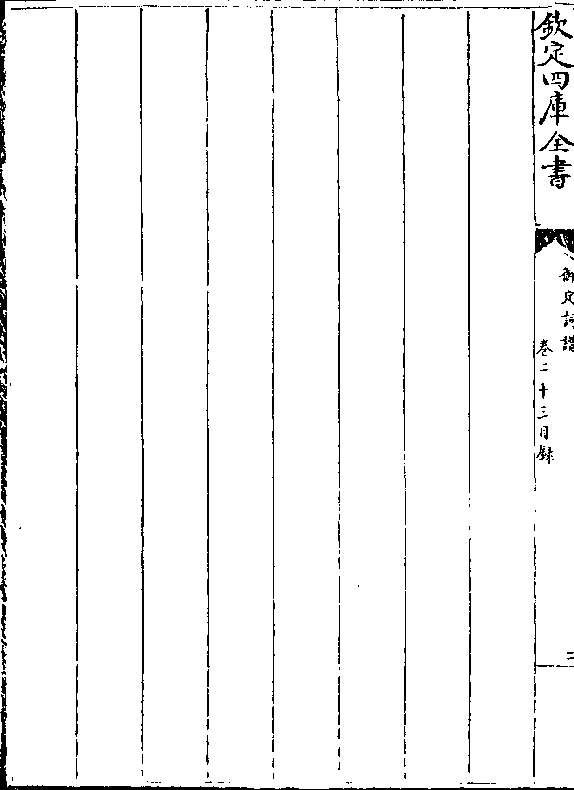 欽定四庫全書
御定詞譜
卷二十三目錄
二